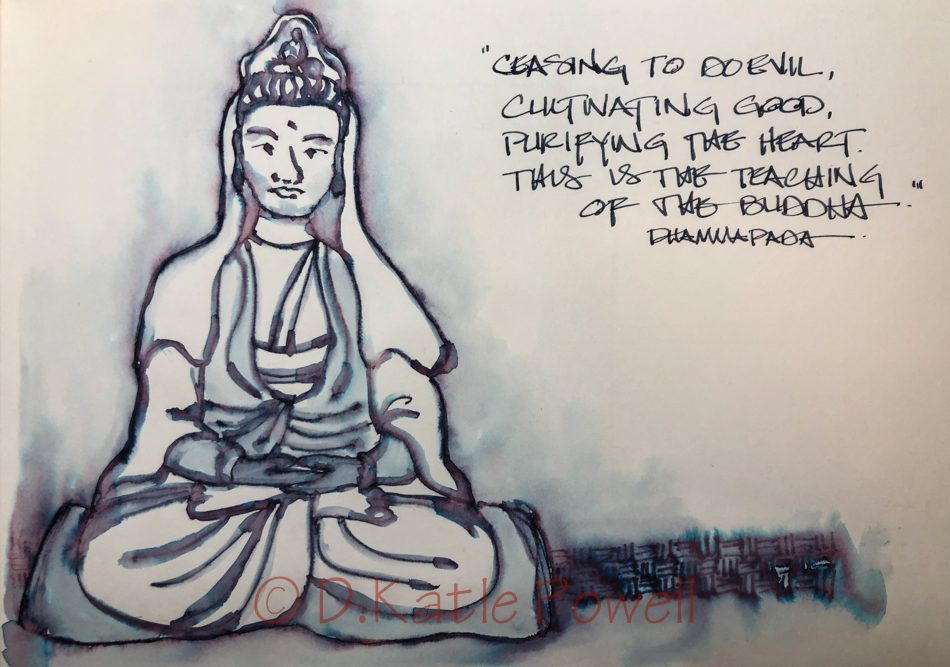 "CEASING TO DO EVIL,
CULTIVATING GOOD,
PURIFYING THE HEART.
THIS IS THE TEACHING
OF THE BUDDHA."
DHAMMAPADA.
© D.Katie Powell